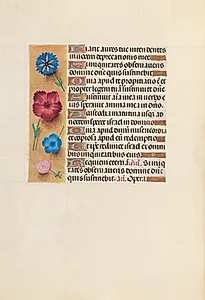 iant aures tue intendentes
in vocem deprecationis mee
i iniquitates observaveris
domine domine quis sustinebit
uia apud te propitiatio est et
propter legem tuam sustinui te dñe
ustinuit aīa mea in verbo
eius speravit anima mea in dño
custodia matutina usqz ad
noctem speret israel in domino
uia apud dñm misericordia
et copiosa apud eum redemptio
t ipse redimet israel ex omni
bus iniquitatibus eius
Requiem eternam Si iniqui
tates observaveris domine domine
quis sustinebit. Añ. Opera